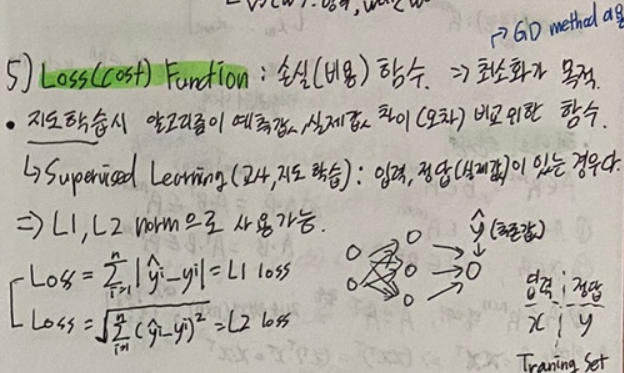 → GD method 사용
5) Loss(cost) Function : 손실(비용) 함수. ⇒ 최소화가 목적.
• 지도학습시 알고리즘이 예측값, 실제값 차이(오차) 비교 위한 함수.
↳ Supervised Learning (교사, 지도 학습) : 입력, 정답(실제값)이 있는 경우다.
⇒ L1, L2 norm으로 사용가능.
ŷ (예측값)
Loss = Σⁿᵢ₌₁ |ŷi - yi| = L1 loss
Loss = √(Σⁿᵢ₌₁ (ŷi - yi)²) = L2 loss
입력 정답
x y
Traning Set